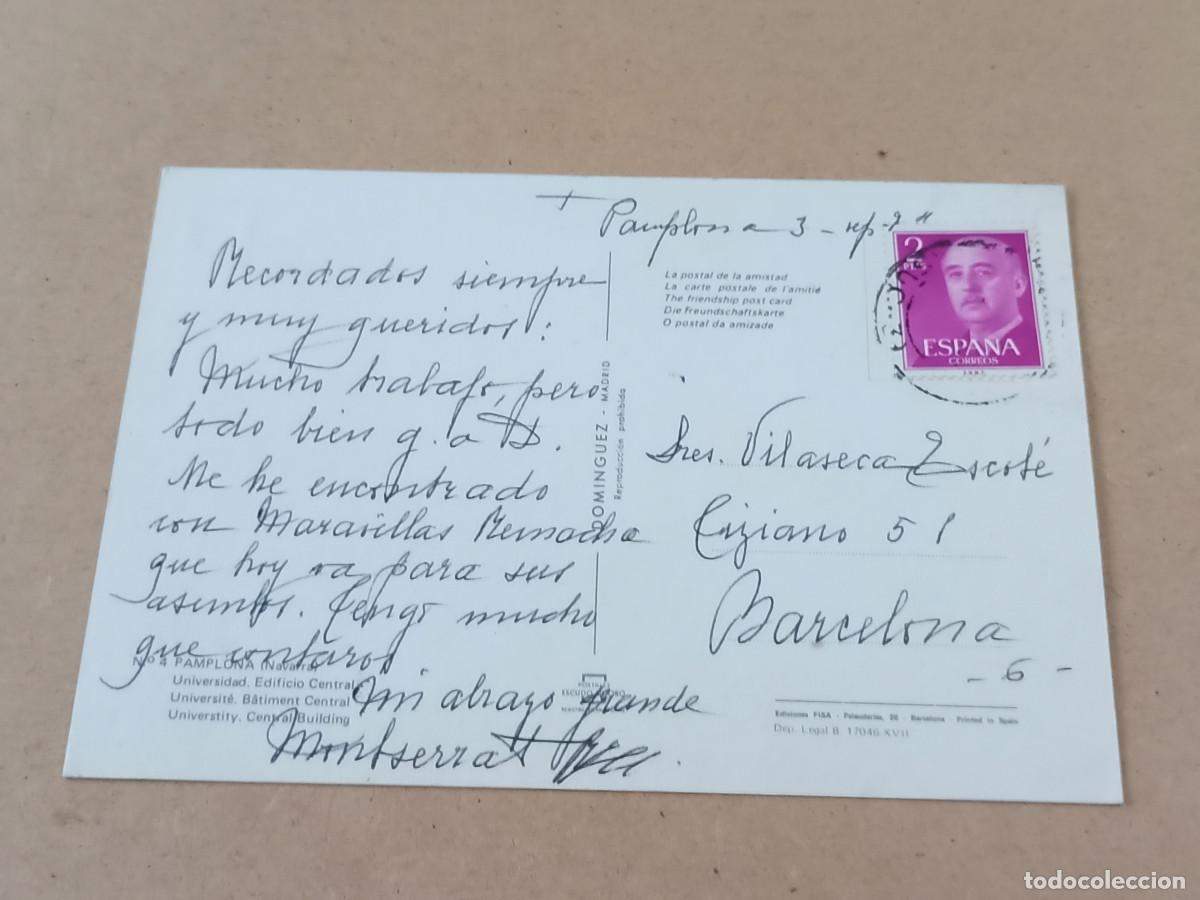 + Pamplona 3 - sep-
Recordados siempre
y muy queridos:
Mucho trabajo, pero
todo bien g. a D.
Me he encontrado
con Maravillas Remacha
que hoy va para sus
asuntos. Tengo mucho
que contaros.
Un abrazo grande
Montserrat
Nº 4 PAMPLONA (Navarra)
Universidad. Edificio Central
Université. Bâtiment Central
Universtity. Central Building
DOMINGUEZ - MADRID
Reproducción prohibida
ESCUDO DE ORO
La postal de la amistad
La carte postale de l'amitié
The friendship post card
Die Freundschaftskarte
O postal da amizade
2
PTAS
ESPAÑA
CORREOS
Sres. Vilaseca Escoté
Tiziano 51
Barcelona
- 6 -
Ediciones FISA - Palaudarias, 26 - Barcelona - Printed in Spain
Dep. Legal B. 17046-XVII
todocoleccion